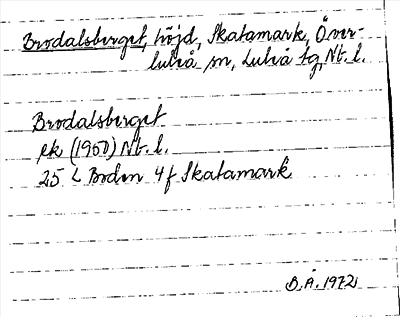 Brodalsberget, höjd, Skatamark, Över-
luleå sn, Luleå tg, Nb. l.
Brodalsberget
ek (1950) Nb. l.
25 L Boden 4 f Skatamark
B.Å. 1972